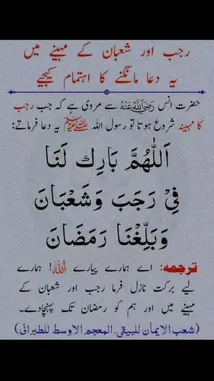 رجب اور شعبان کے مہینے میں
یہ دعا مانگنے کا اہتمام کیجیے
حضرت انس رضی اللہ عنہ سے مروی ہے کہ جب رجب
کا مہینہ شروع ہوتا تو رسول اللہ ﷺ یہ دعا فرماتے:
اَللّٰهُمَّ بَارِكْ لَنَا
فِيْ رَجَبَ وَشَعْبَانَ
وَبَلِّغْنَا رَمَضَانَ
ترجمہ: اے ہمارے پیارے اللہ! ہمارے
لیے برکت نازل فرما رجب اور شعبان کے
مہینے میں اور ہم کو رمضان تک پہنچادیے۔
(شعب الایمان للبیہقی، المعجم الاوسط للطبرانی)